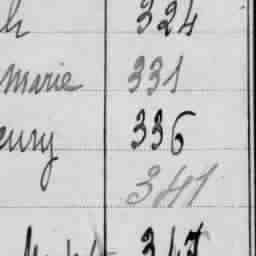 324
Marie 331
eury 336
341
347